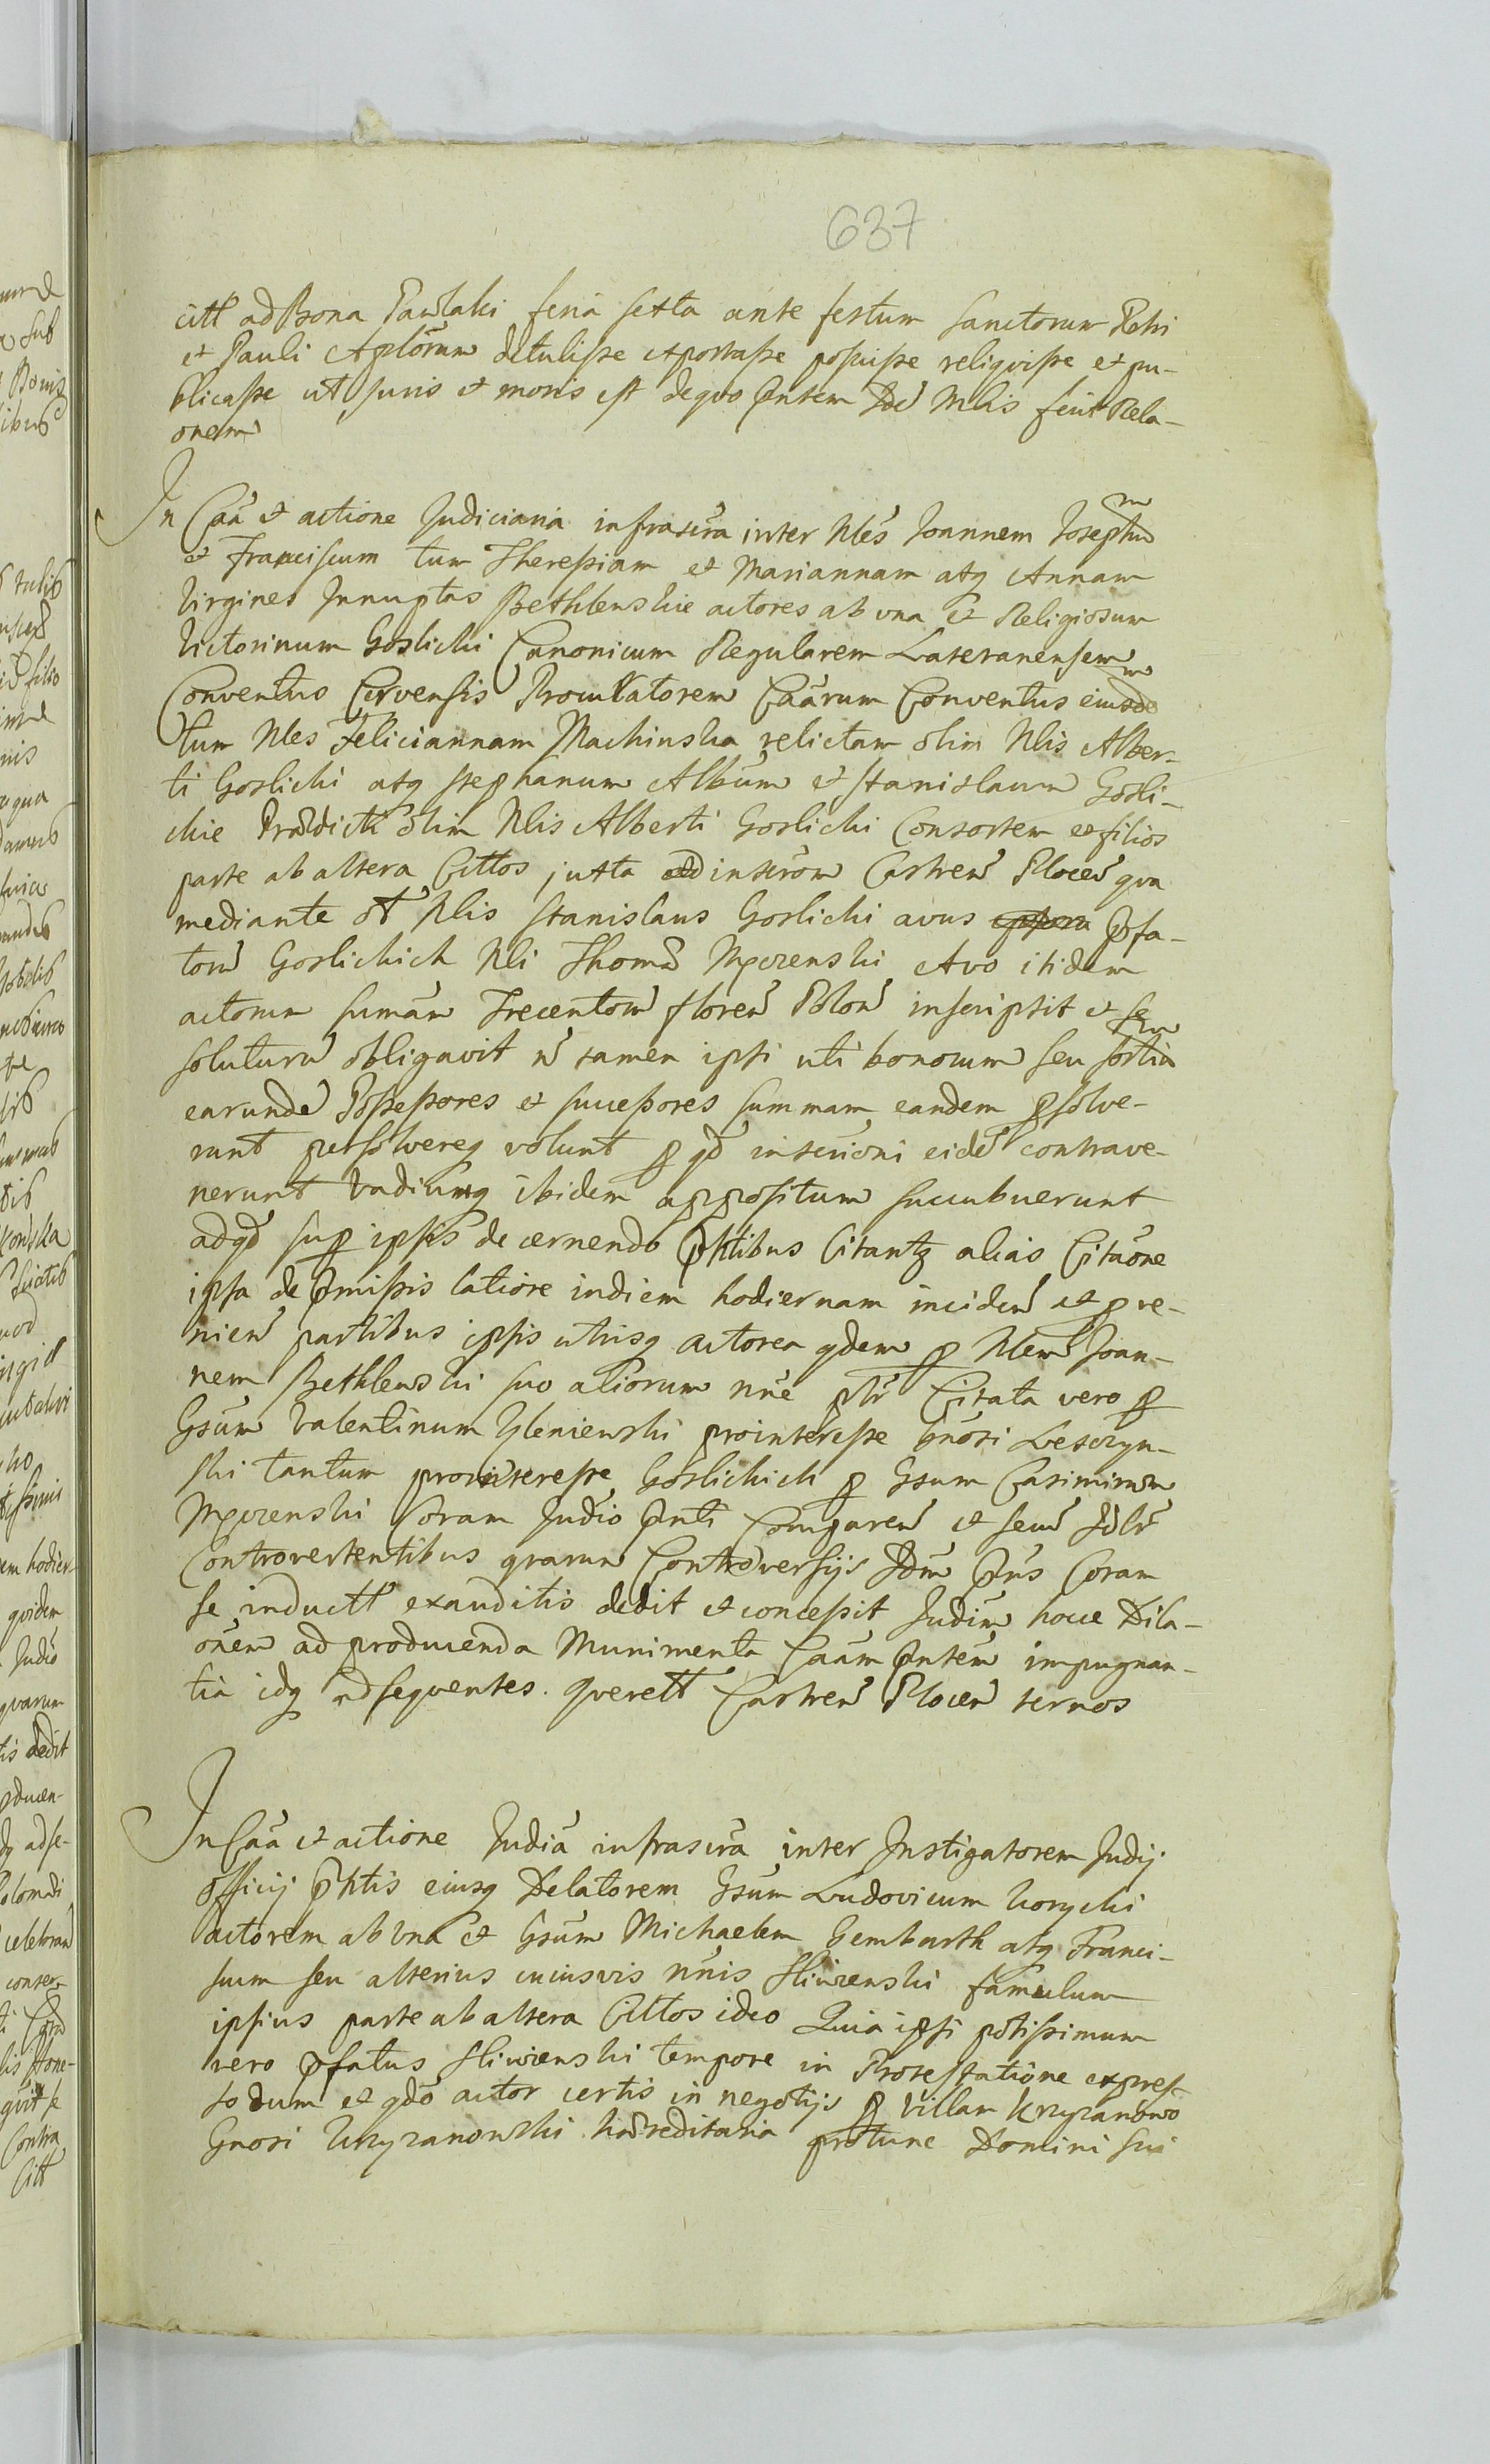 637
citt ad Bona Pawlaki feria sexta ante festum Sanctorum Petri
et Pauli Aplōrum detulisse exportasse posuisse reliqvisse et pu-
blicasse ut Juris et moris est de qvo pntem Idē Mlis fecit Rela-
onem
In Caā et actione Judiciaria infrascra inter Nles Joannem Josephū
et Franciscum tum Theressiam et Mariannam atq Annam
Virgines Innuptas Bethlenskie actores ab vna et Religiosum
Victorinum Goslicki Canonicum Regularem Lateranensem
Conventus Cervensis Procuratorem Caārum Conventus eiusdē
tum Nles Feliciannam Machinska relictam olim Nlis Alber-
ti Goslicki atq Stephanum Album et Stanislaum Gosli-
ckie Praedicti olim Nlis Alberti Goslicki Consortem et filios
parte ab altera Cittos juxta inscrōm Castren Plocen qva
mediante Nlis Stanislaus Goslicki avus pfa-
torū Goslickich Nli Thomæ Mycrenski Avo itidem
actorum sumām Trecentorū floren Polon inscripsit et se
soluturū obligavit n tamen ipsi uti bonorum seu sortiū
earundē Possessores et successores summam eandem psolve-
runt persolvereq volunt p qd inscrioni eidē contrave-
nerunt Vadiumq ibidem appositum succubuerunt
ad qd sup ipsis decernendo phtibus Citantq alias Citaōne
ipsa de pmissis latiore in diem hodiernam inciden et pve-
nien partibus ipsis utrisq actorea qdem p Nlem Joan-
nem Bethlenski suo aliorum nne pltr Citata vero p
Gsum Valentinum Gleniewski pro interesse Gnosi Lesczyn-
ski tantum pro interesse Goslickich p Gsum Casimirum
Mycrenski Coram Judio pnti Comparen et secū Idlr
Controvertentibus qvarum Controversijs Idm pns Coram
se inductt exauditis dedit et concessit Judim hocce Dila-
onem ad producenda Munimenta Caām pntem impugnan-
tia idq ad seqventes querett Castren Plocen ternos
In Caā et actione Judiā infrascra inter Instigatorem Judij
Officij phtis eiusq Delatorem Gsum Ludovicum
actorem ab Vna et Gsum Michaelem Gembarth atq Franci-
scum seu alterius cuiusvis nnis Sliwienski famulum
ipsius parte ab altera Cittos ideo Quia ipsi potissimum
vero pfatus Sliwienski tempore in Protestatione expres-
so dum et qdo actor certis in negotijs p Villam Krzyzanowo
Gnosi Krzyzanowski haereditaria protunc Domini sui